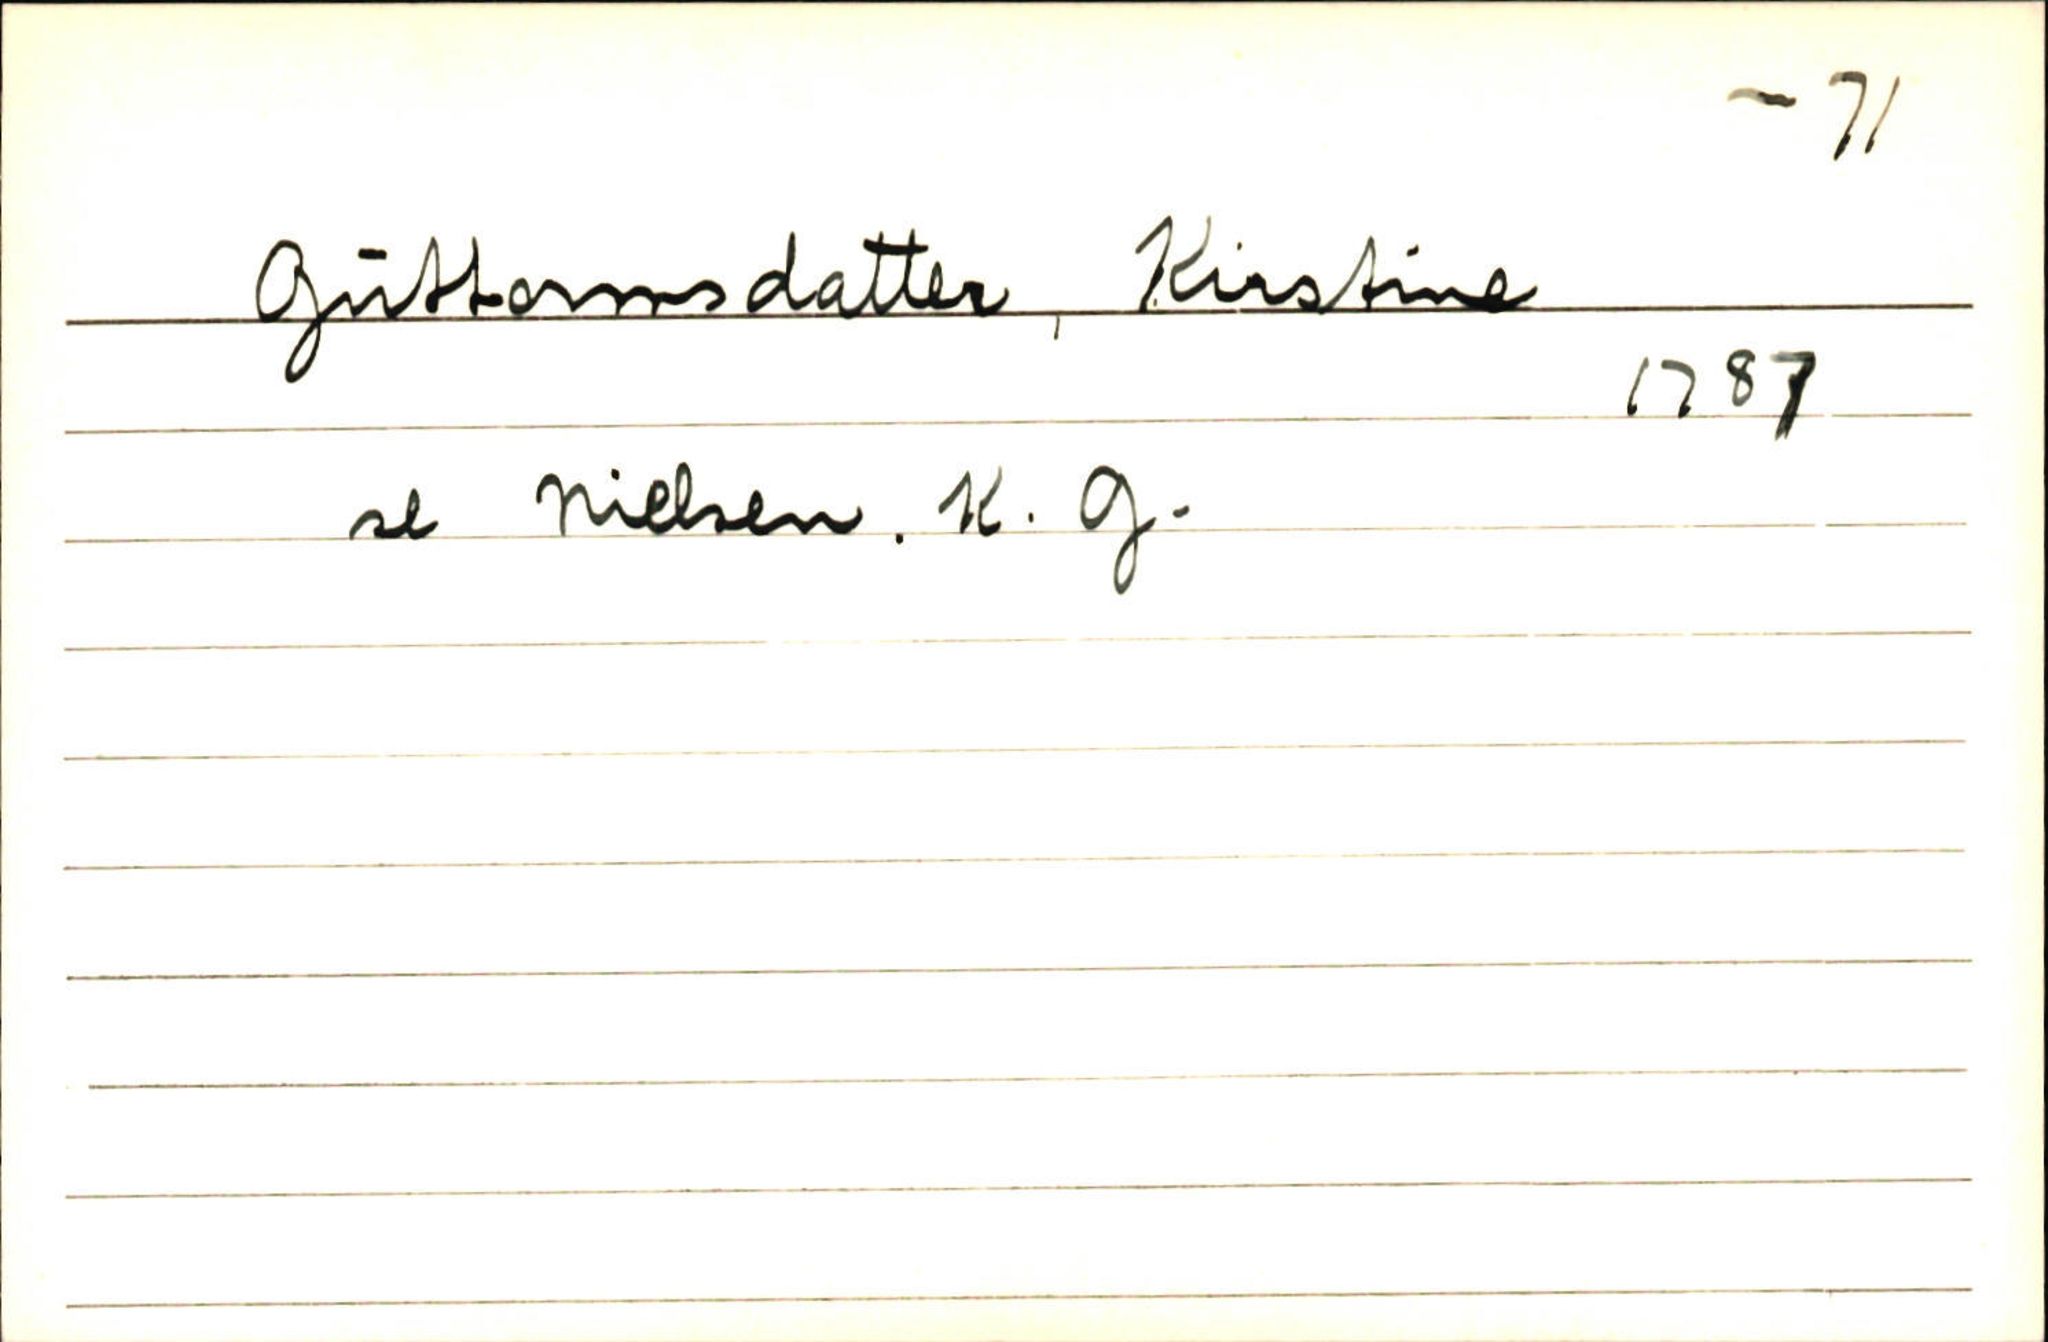 - 71
Gūttormsdatter, Kirstine
1787
se Nielsen. K. G.